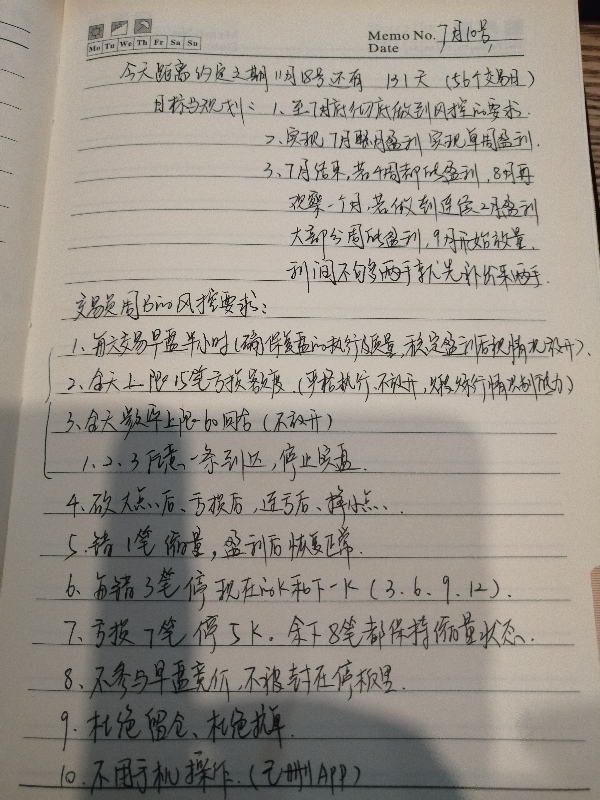 Memo No. 7月10号
Mo Tu We Th Fr Sa Su
Date
今天距离约定之期11月18号还有 131天 (56个交易日)
目标与规划: 1、至7月底彻底做到风控的要求.
2、实现7月整月盈利 实现单周盈利.
3、7月结束,若4周都能盈利,8月再
观察一个月,若做到连续2月盈利
大部分周能盈利,9月开始放量,
利润不够多两手就先补出来两手.
交易员周的风控要求:
1、每天交易早盘半小时(确保复盘的执行及质量,稳定盈利后视情况放开).
2、每天上限15笔亏损额度 (严格执行,不放开,以执行情况)
3、每天上限60回合 (不放开)
1、2、3任意一条到达,停止实盘.
4、砍大点后、亏损后、连亏后、挣小点、
5、错1笔缩量,盈利后恢复正常.
6、每错3笔停现在的K和下一K (3、6、9、12).
7、亏损7笔停5K。余下8笔都保持缩量状态.
8、不参与早盘竞价,不被封在停板里.
9、杜绝留仓、杜绝扛单.
10、不用手机操作.(已删APP)